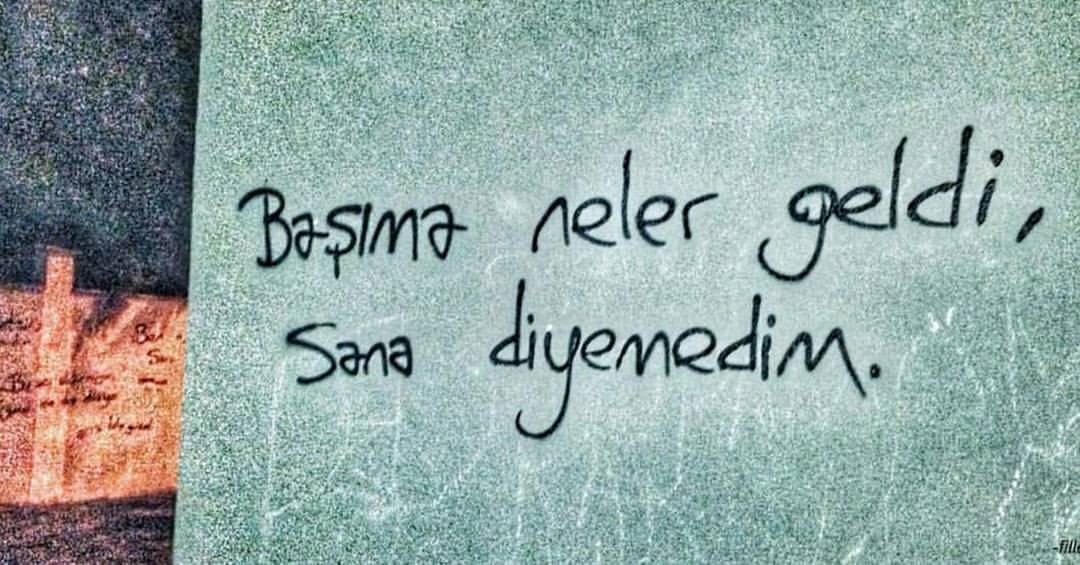 Başıma neler geldi,
Sana diyemedim.